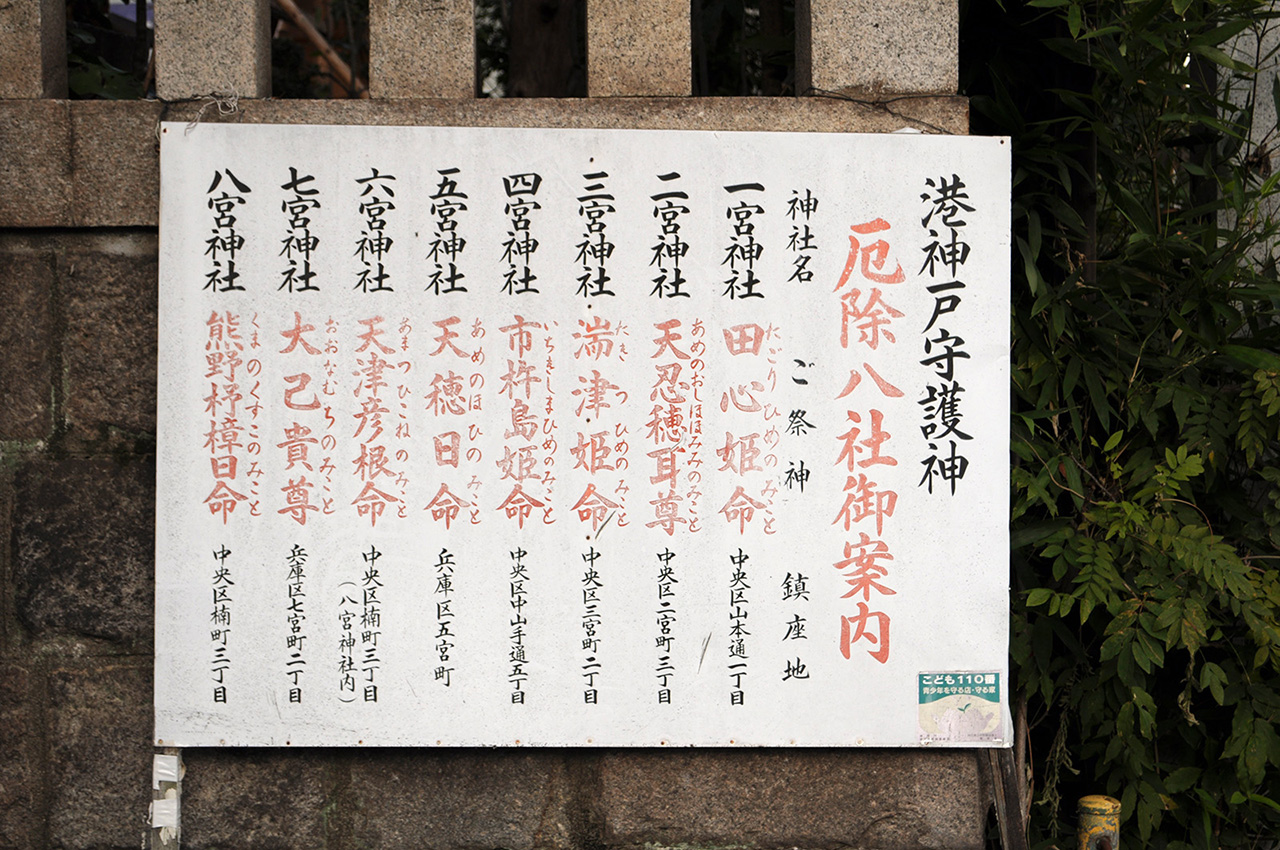 港神戸守護神
厄除八社御案内
神社名 ご祭神 鎮座地
一宮神社 田心姫命 たごりひめのみこと 中央区山本通一丁目
二宮神社 天忍穂耳尊 あめのおしほほみみのみこと 中央区二宮町三丁目
三宮神社 湍津姫命 たきつひめのみこと 中央区三宮町二丁目
四宮神社 市杵島姫命 いちきしまひめのみこと 中央区中山手通五丁目
五宮神社 天穂日命 あめのほひのみこと 兵庫区五宮町
六宮神社 天津彦根命 あまつひこねのみこと 中央区楠町三丁目
（八宮神社内）
七宮神社 大己貴尊 おおなむちのみこと 兵庫区七宮町二丁目
八宮神社 熊野杼樟日命 くまのくすこのみこと 中央区楠町三丁目
こども110番
青少年を守る店・守る家